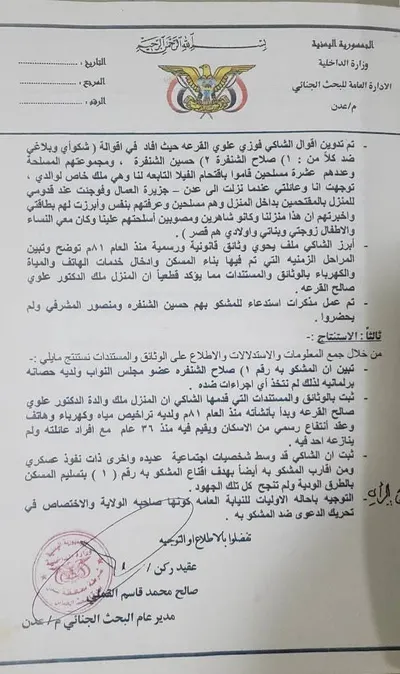 بسم الله الرحمن الرحيم
الجمهورية اليمنية
وزارة الداخلية
الادارة العامة للبحث الجنائي
م/عدن
التاريخ :
المرجع :
الرقم :
- تم تدوين اقوال الشاكي فوزي علوي القرعه حيث افاد في اقوالة ( شكوأي وبلاغي
ضد كلاً من : ١) صلاح الشنفرة ٢) حسين الشنفرة ، ومجموعتهم المسلحة
وعددهم عشرة مسلحين قاموا باقتحام الفيلا التابعه لنا وهي ملك خاص لوالدي ،
توجهت انا وعائلتي عندما نزلت الى عدن – جزيرة العمال وفوجئت عند قدومي
للمنزل بالمقتحمين بداخل المنزل وهم مسلحين وعرفتهم بنفسي وأبرزت لهم بطاقتي
واخبرتهم ان هذا منزلنا وكانو شاهرين ومصوبين أسلحتهم علينا وكان معي النساء
والاطفال زوجتي وبناتي واولادي هم قصر ) .
- أبرز الشاكي ملف يحوي وثائق قانونية ورسمية منذ العام ٨١م توضح وتبين
المراحل الزمنيه التي تم فيها بناء المسكن وادخال خدمات الهاتف والمياة
والكهرباء بالوثائق والمستندات مما يؤكد قطعياً ان المنزل ملك الدكتور علوي
صالح القرعه .
- تم عمل مذكرات استدعاء للمشكو بهم حسين الشنفره ومنصور المشرقي ولم
يحضروا .
ثالثاً : الاستنتاج :-
من خلال جمع المعلومات والاستدلالات والاطلاع على الوثائق والمستندات نستنتج مايلي :-
- تبين ان المشكو به رقم ١) صلاح الشنفره عضو مجلس النواب ولديه حصانه
برلمانيه لذلك لم نتخذ أي اجراءات ضده .
- ثبت بالوثائق والمستندات التي قدمها الشاكي ان المنزل ملك والدة الدكتور علوي
صالح القرعه وبدأ بأنشأته منذ العام ٨١م ولديه تراخيص مياه وكهرباء وهاتف
وعقد أنتفاع رسمي من الاسكان ويقيم فيه منذ ٣٦ عام مع افراد عائلته ولم
ينازعه احد فيه .
- ثبت ان الشاكي قد وسط شخصيات اجتماعية عديده واخرى ذات نفوذ عسكري
ومن اقارب المشكو به أيضاً بهدف أقناع المشكو به رقم ( ١ ) بتسليم المسكن
بالطرق الودية ولم تنجح كل تلك الجهود .
- التوجيه باحاله الاوليات للنيابة العامه كونها صاحبه الولاية والاختصاص في
تحريك الدعوى ضد المشكو به .
تفضلوا بالاطلاع او التوجيه
عقيد ركن /
صالح محمد قاسم
مدير عام البحث الجنائي م/عدن